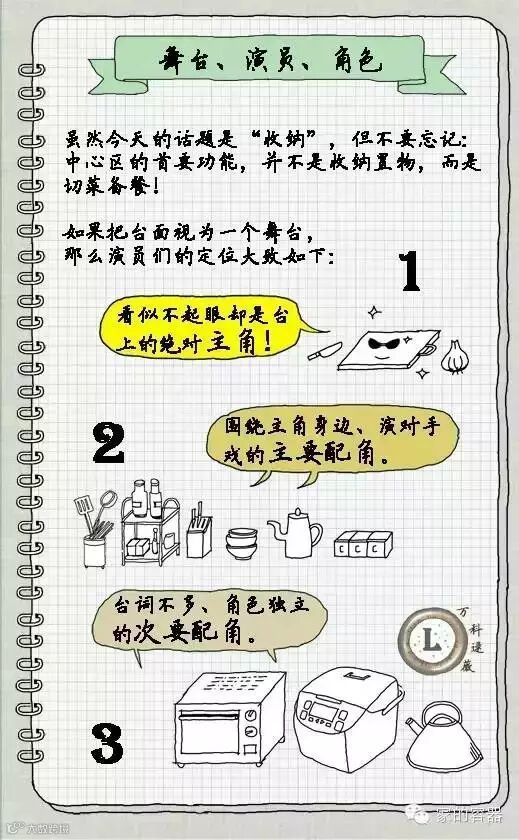 舞台、演员、角色
虽然今天的话题是“收纳”，但不要忘记：
中心区的首要功能，并不是收纳置物，而是
切菜备餐！
如果把台面视为一个舞台，
那么演员们的定位大致如下：
1
看似不起眼却是台
上的绝对主角！
2
围绕主角身边、演对手
戏的主要配角。
C C C
台词不多、角色独立
的次要配角。
L
万科逯薇
3
家的容器